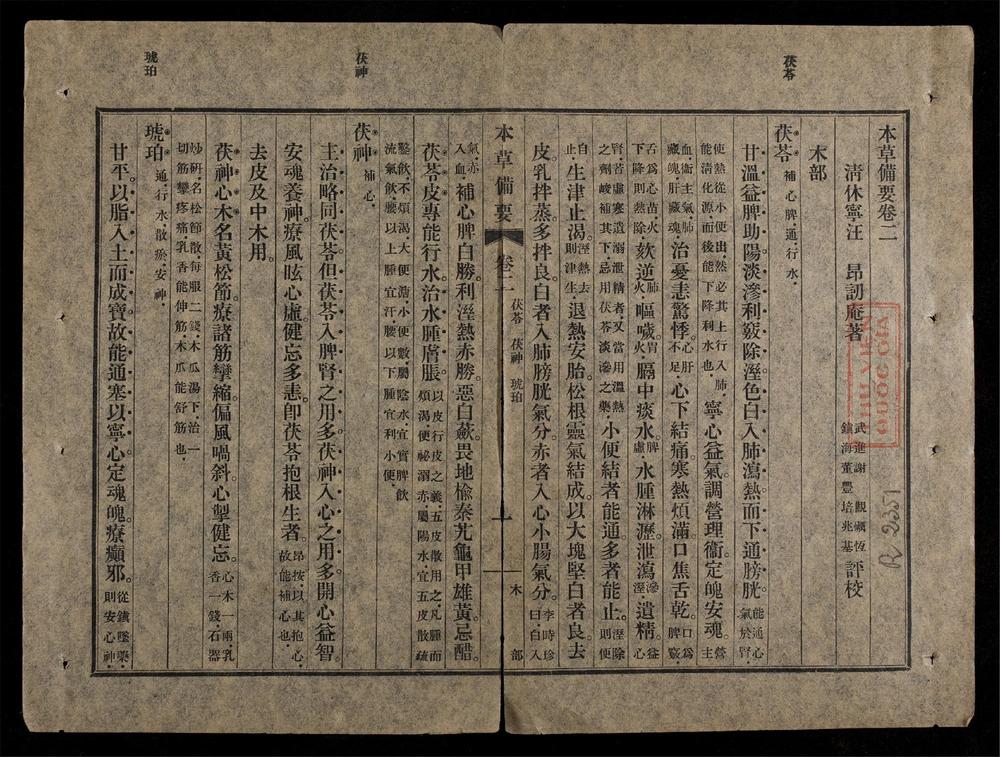 茯苓
茯神
琥珀
本草備要卷二
清休寧汪　昂訒庵著
武進謝　觀礪恆
鎮海董豐培兆基
評校
木部
茯苓補心脾通行水
甘溫益脾助陽淡滲利竅除溼色白入肺瀉熱而下通膀胱能通心氣於腎
使熱從小便出然必其上行入肺能清化源而後能下降利水也寧心益氣調營理衞定魄安魂營主
血衞主氣肺藏魄肝藏魂治憂恚驚悸心肝不足心下結痛寒熱煩滿口焦舌乾口為脾竅
舌為心苗火下降則熱除欬逆肺火嘔噦胃火膈中痰水脾虛水腫淋瀝泄瀉滲溼遺精益心
腎若虛寒遺溺泄精者又當用溫熱之劑峻補其下忌用茯苓淡滲之藥小便結者能通多者能止溼除則便
自止生津止渴溼熱去則津生退熱安胎松根靈氣結成以大塊堅白者良去
皮乳拌蒸多拌良白者入肺膀胱氣分赤者入心小腸氣分李時珍曰白入
本草備要
卷二
茯苓　茯神　琥珀
木部
氣赤入血補心脾白勝利溼熱赤勝惡白蘞畏地榆秦艽龜甲雄黃忌醋
茯苓皮專能行水治水腫膚脹以皮行皮之義五皮散用之凡腫而煩渴便祕溺赤屬陽水宜五皮散疏
鑿飲不煩渴大便溏小便數屬陰水宜實脾飲流氣飲腰以上腫宜汗腰以下腫宜利小便
茯神補心
主治略同茯苓但茯苓入脾腎之用多茯神入心之用多開心益智
安魂養神療風眩心虛健忘多恚卽茯苓抱根生者昂按以其抱心故能補心也
去皮及中木用
茯神心木名黃松節療諸筋攣縮偏風喎斜心掣健忘心木一兩乳香一錢石器
炒研名松節散每服二錢木瓜湯下治一切筋攣疼痛乳香能伸筋木瓜能舒筋也
琥珀通行水散瘀安神
甘平以脂入土而成寶故能通塞以寧心定魂魄療癲邪從鎮墜藥則安心神
THU VIEN
QUOC GIA
R 2351